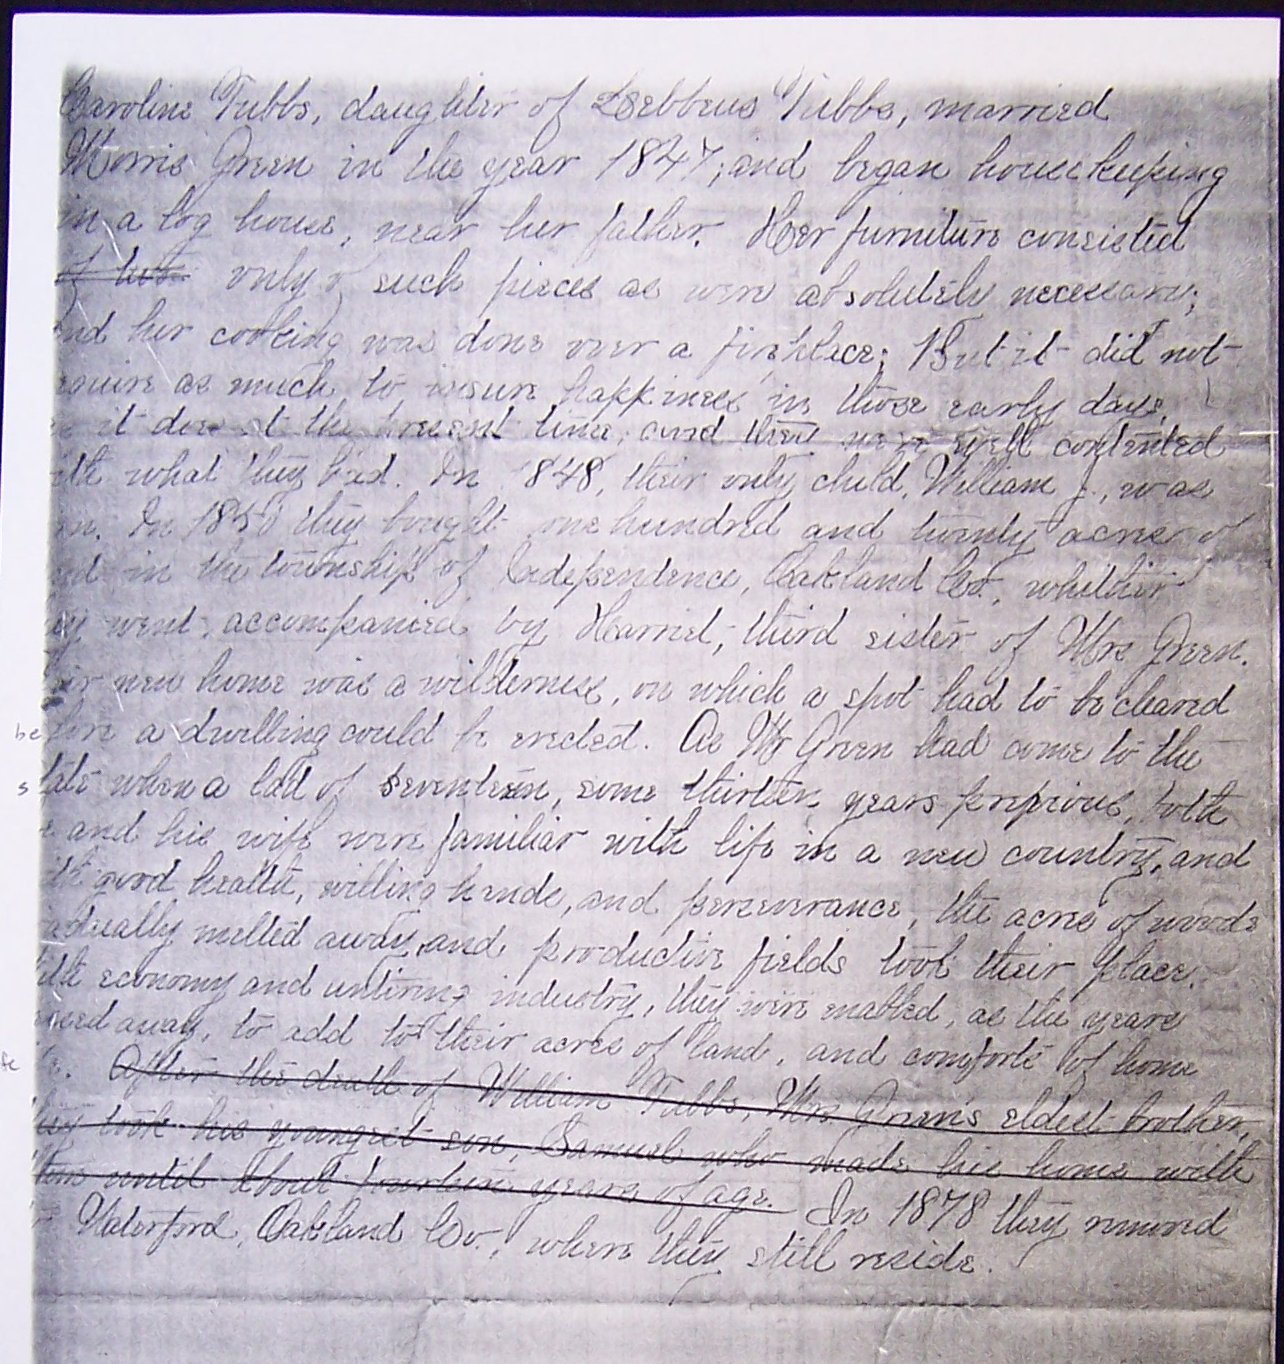 Caroline Tubbs, daughter of Lebbeus Tubbs, married
Morris Green in the year 1847; and began housekeeping
in a log house, near her father. Her furniture consisted
of two only of such pieces as were absolutely necessary;
and her cooking was done over a fireplace; But it did not
equire as much to insure happiness in those early days,
it does at the present time, and they were well contented
ith what they had. In 1848, their only child, William J., was
rn. In 1850 they bought one hundred and twenty acres of
nd in the township of Independence, Oakland Co., whither
ey went, accompanied by Harriet, third sister of Mrs Green.
eir new home was a wilderness, on which a spot had to be cleared
before a dwelling could be erected. As Mr Green had come to the
state when a lad of seventeen, some thirteen years previous, both
e and his wife were familiar with life in a new country, and
ith good health, willing hands, and perseverance, the acres of woods
adually melted away, and productive fields took their place.
ith economy and untiring industry, they were enabled, as the years
ssed away, to add to their acres of land, and comforts of home
fe. After the death of William Tubbs, Mrs Green's eldest brother,
they took his youngest son, Samuel who made his home with
them until about fourteen years of age. In 1878 they removed
Waterford, Oakland Co., where they still reside.